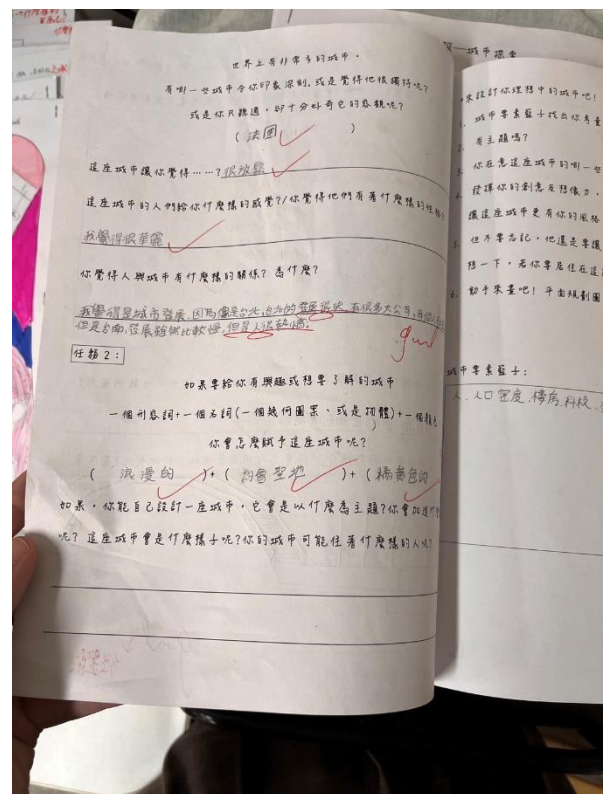 世界上有非常多的城市,
有哪一些城市令你印象深刻,或是覺得他很獨特呢?
或是你只聽過,卻十分好奇它的容貌呢?
(法國)
這座城市讓你覺得……?很放鬆
這座城市的人們給你什麼樣的感覺?/你覺得他們有著什麼樣的性格?
我覺得很華麗
你覺得人與城市有什麼樣的關係?為什麼?
我覺得是城市發展,因為像是台北,台北的發展很快,有很多大公司,
但是台南,發展雖然比較慢,但是人很熱情。
任務2:
如果要給你有興趣或想要了解的城市
一個形容詞+一個名詞(一個幾何圖案、或是物體)+一個顏色
你會怎麼賦予這座城市呢?
(浪漫的)+(約會聖地)+(橘黃色的
如果,你能自己設計一座城市,它會是以什麼為主題?你會加進什
呢?這座城市會是什麼樣子呢?你的城市可能住著什麼樣的人呢?
城市探索
來設計你理想中的城市吧!
1. 城市要素籃子找出你考量
2. 有主題嗎?
3. 你在意這座城市的哪一些
4. 發揮你的創意及想像力,
讓這座城市更有你的風格
5. 但不要忘記,他還是要讓
想一下,若你要居住在這
6. 動手來畫吧!平面規劃圖
城市要素籃子:
人、人口密度、樓房、科校、